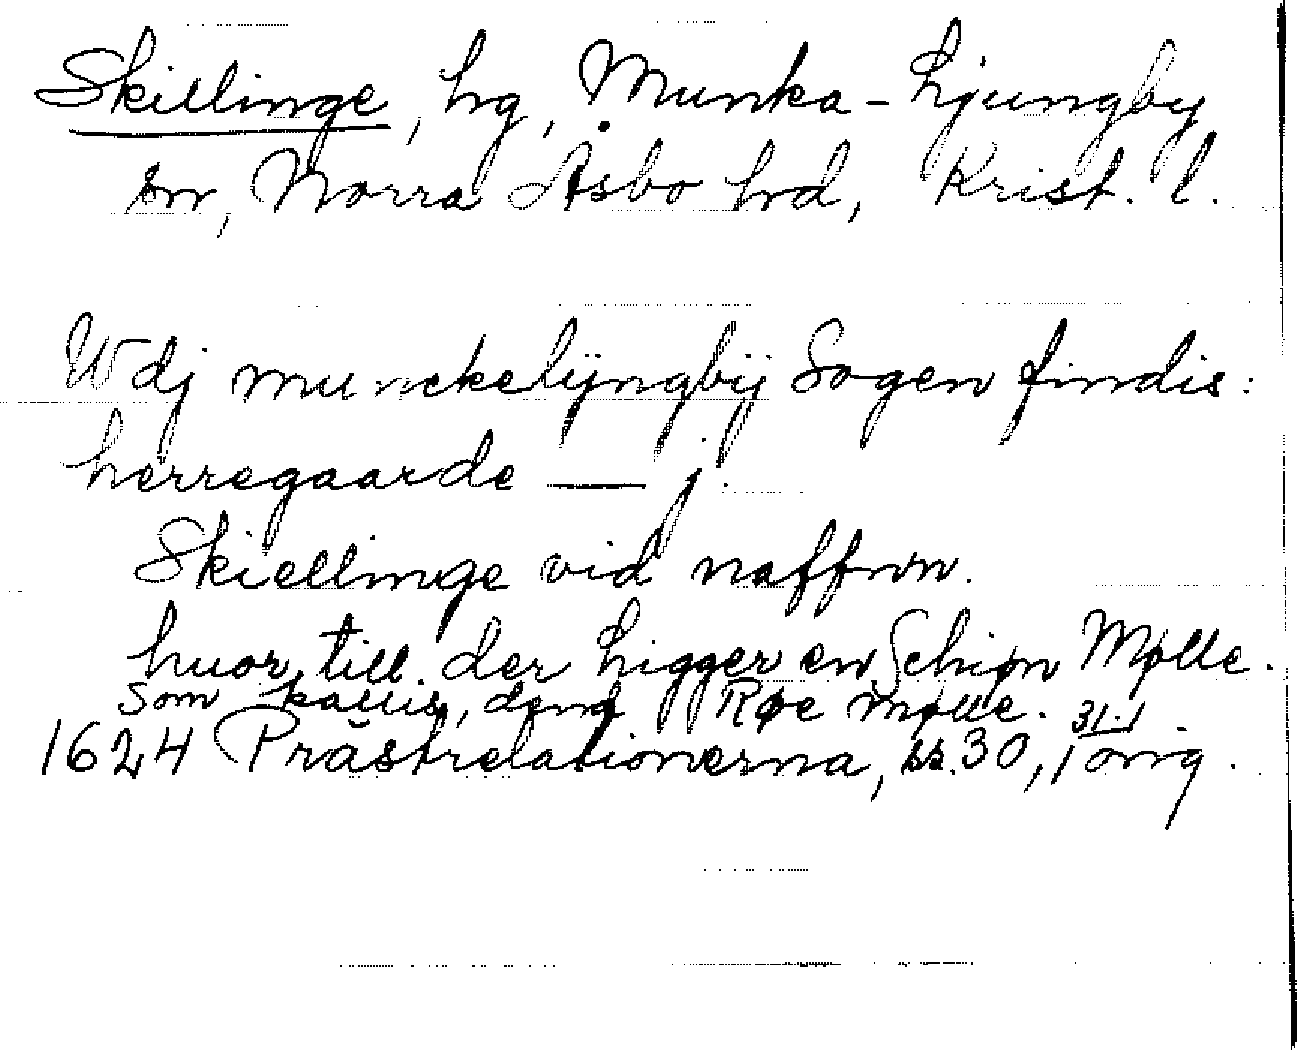 Skillinge, hg, Munka-Ljungby
sn, Norra Åsbo hd, Krist. l.
Wdj munckelÿngbÿ Sogen findis:
herregaarde — j.
Skiellinge vid naffnn.
huor till der ligger en Schiøn Mølle.
som kallis, dend Røe mølle.
1624 Prästrelationerna, ss. 30, 31. I orig.